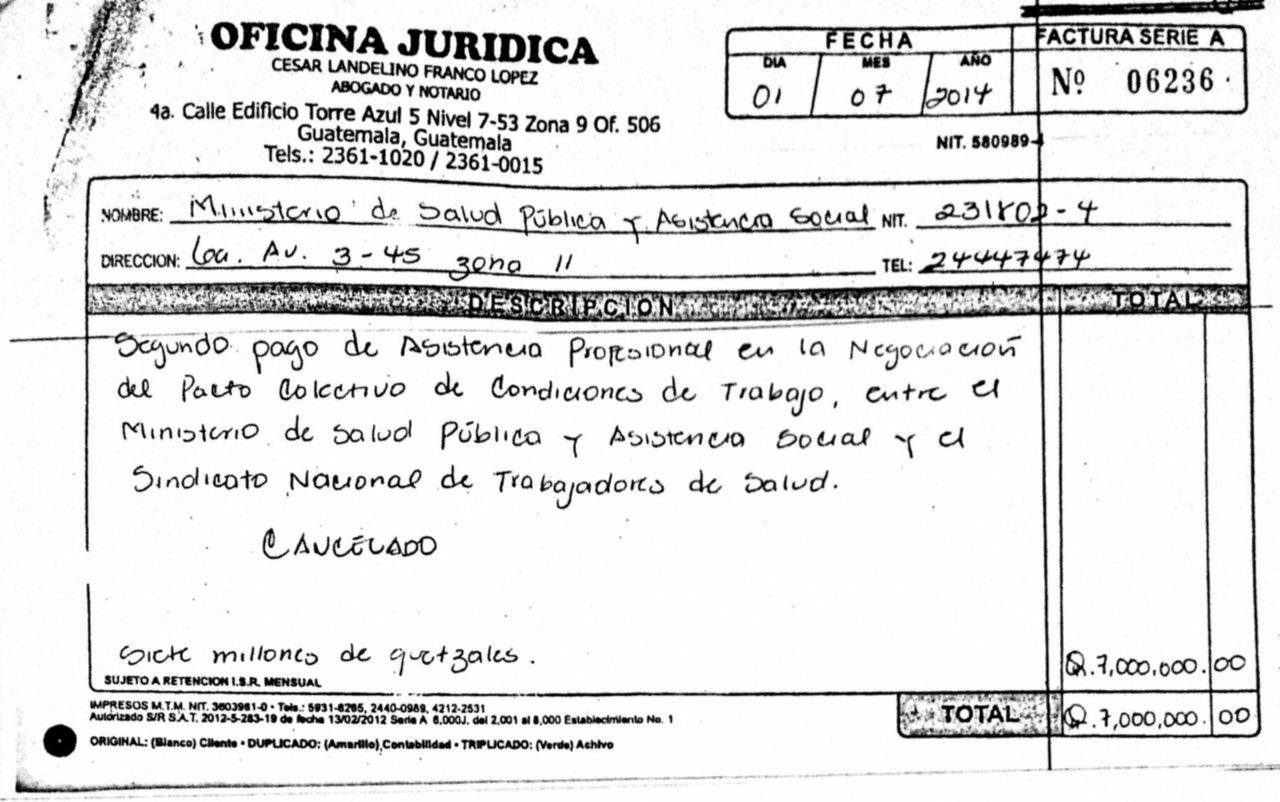 OFICINA JURIDICA
CESAR LANDELINO FRANCO LOPEZ
ABOGADO Y NOTARIO
4a. Calle Edificio Torre Azul 5 Nivel 7-53 Zona 9 Of. 506
Guatemala, Guatemala
Tels.: 2361-1020 / 2361-0015
FECHA
DIA MES AÑO
01 07 2014
FACTURA SERIE A
Nº 06236
NIT. 580989-
NOMBRE: Ministerio de Salud Pública y Asistencia Social NIT. 231802-4
DIRECCION: 6a. Av. 3-45 zona 11 TEL: 24447474
DESCRIPCION TOTAL
Segundo pago de Asistencia Profesional en la Negociación
del Pacto Colectivo de Condiciones de Trabajo, entre el
Ministerio de Salud Pública y Asistencia Social y el
Sindicato Nacional de Trabajadores de Salud.
CANCELADO
Siete millones de quetzales. Q.7,000,000.00
SUJETO A RETENCION I.S.R. MENSUAL
TOTAL Q.7,000,000.00
IMPRESOS M.T.M. NIT. 3603981-0 • Tels.: 5931-8265, 2440-0989, 4212-2531
Autorizado S/R S.A.T. 2012-5-283-19 de fecha 13/02/2012 Serie A 6,000J. del 2,001 al 8,000 Establecimiento No. 1
ORIGINAL: (Blanco) Cliente • DUPLICADO: (Amarillo) Contabilidad • TRIPLICADO: (Verde) Achivo